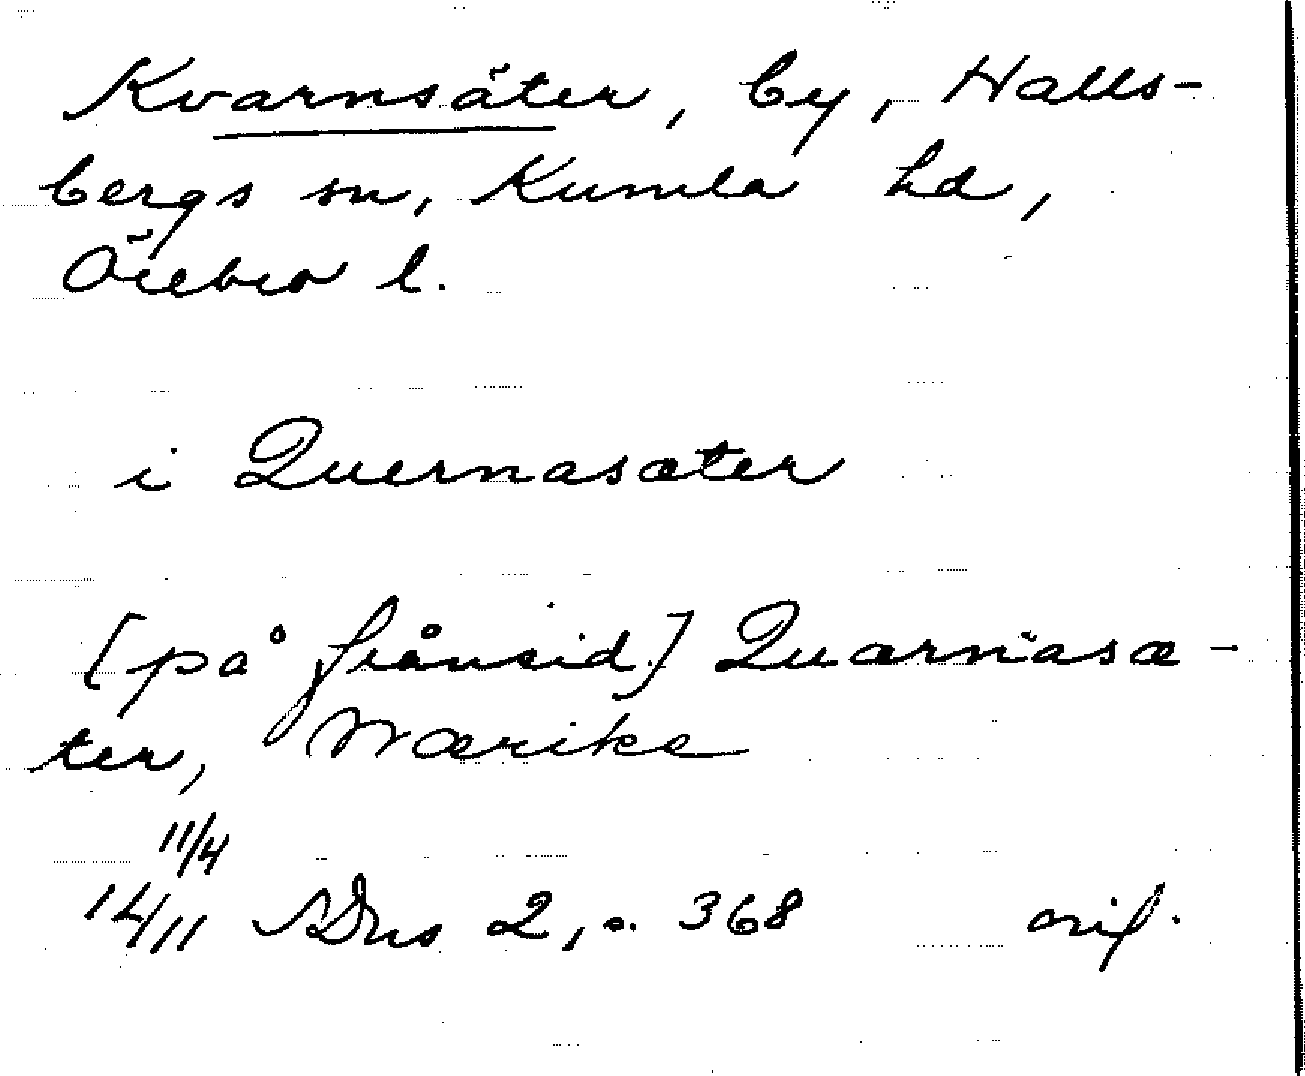 Kvarnsäter, by, Halls-
bergs sn, Kumla hd,
Örebro l.
i Quernasæter
[på frånsid.] Quærnasæ-
ter, Nærike
11/4
14/11 SDns 2, s. 368 orig.